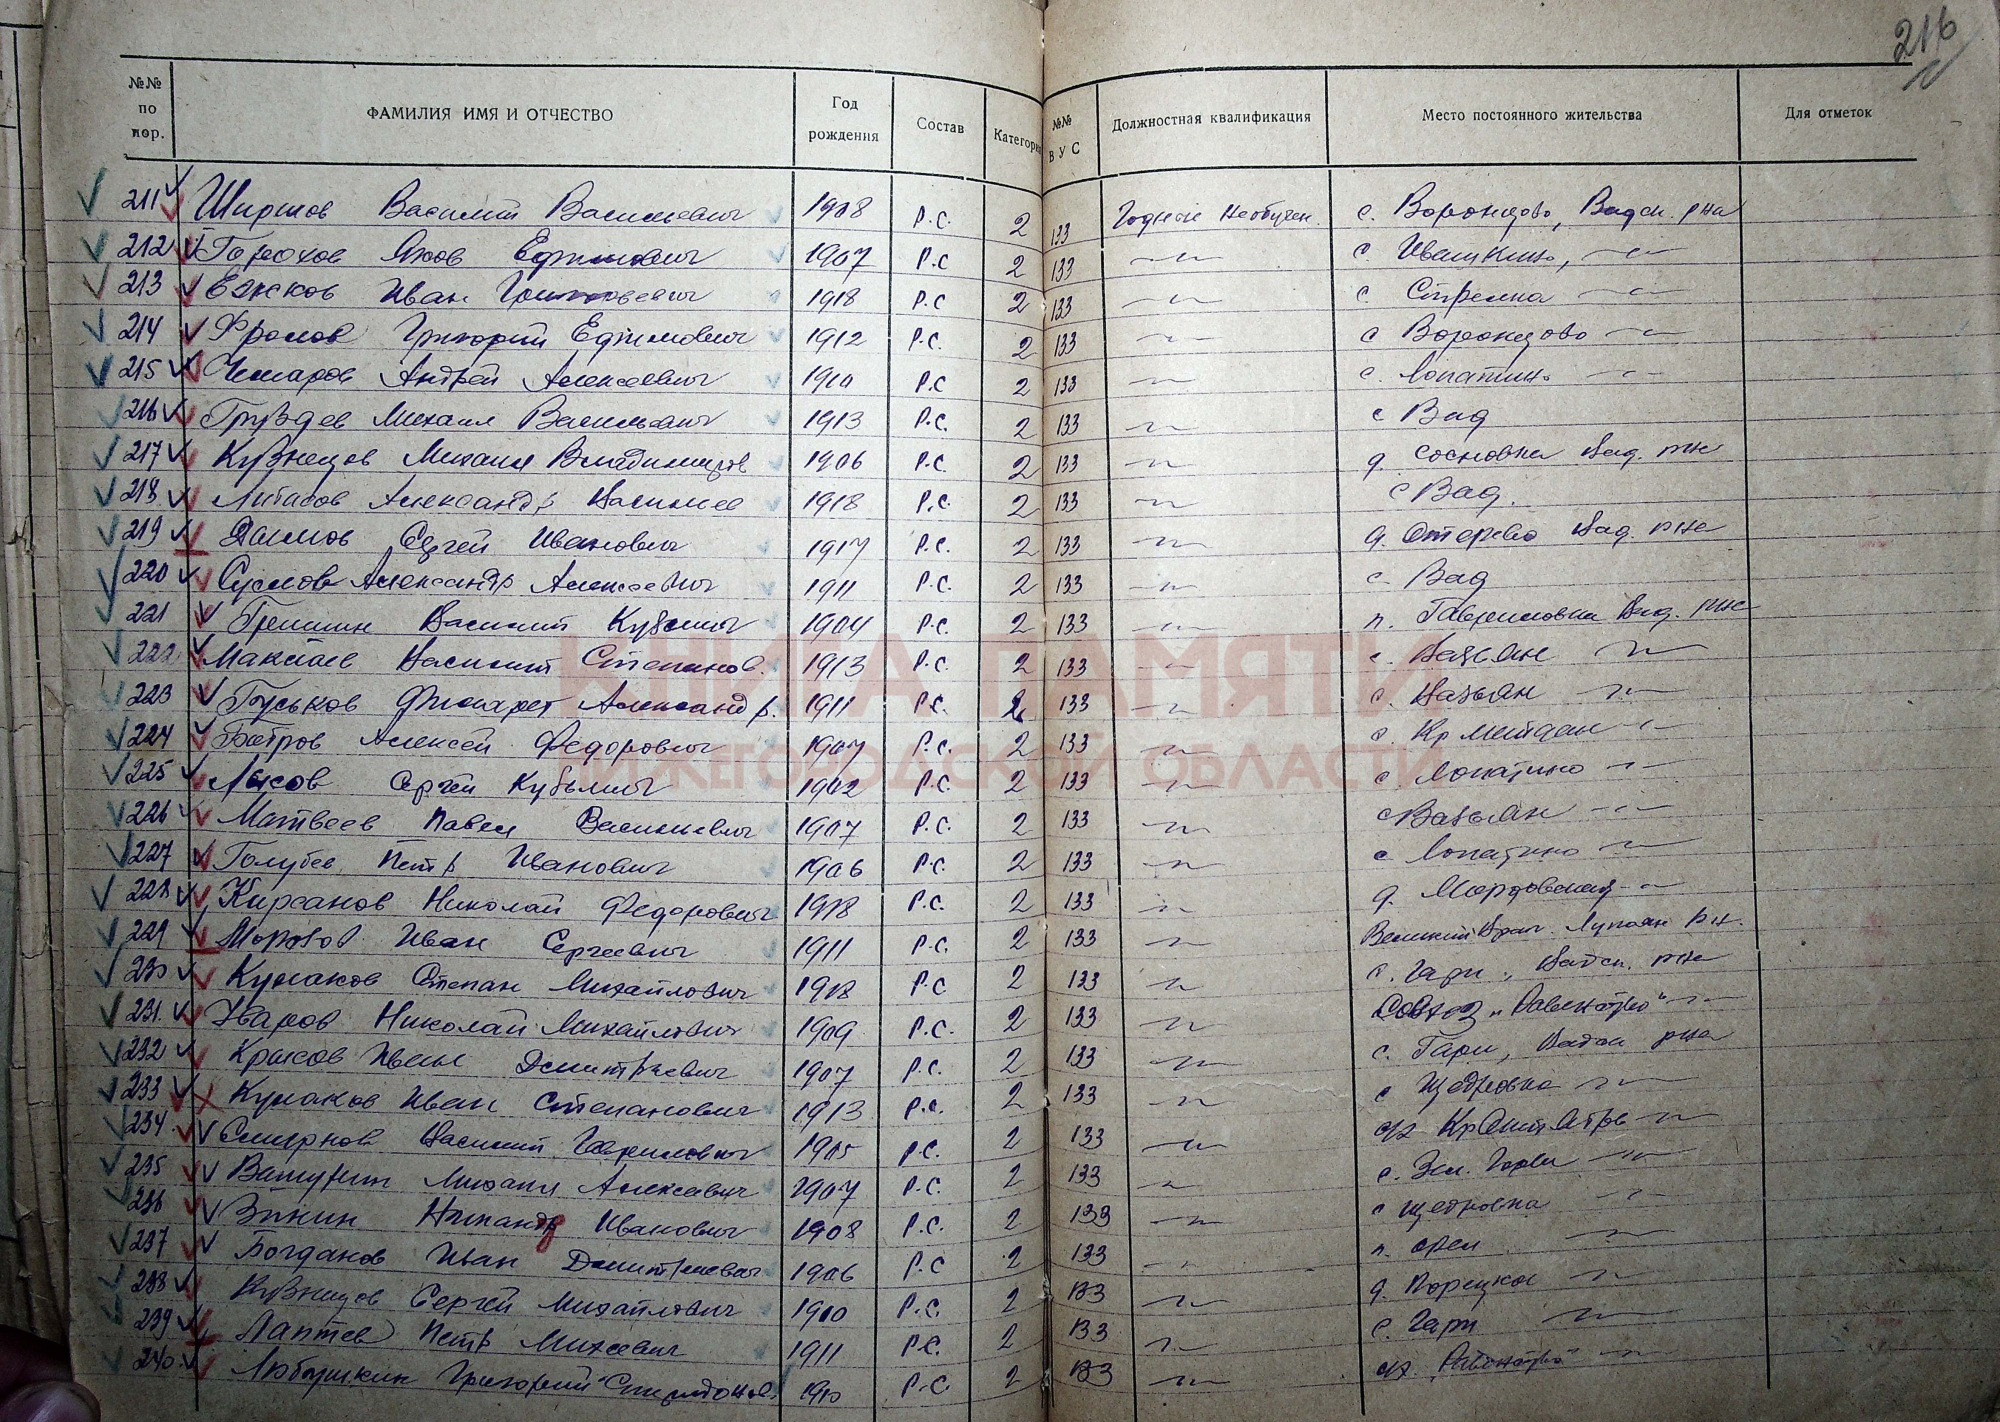 216
№№ по пор. ФАМИЛИЯ ИМЯ И ОТЧЕСТВО Год рождения Состав Категория №№ ВУС Должностная квалификация Место постоянного жительства Для отметок
211 Ширшов Василий Васильевич 1908 Р.С. 2 133 Годные необучен. с. Воронцово, Вадск. р-на
212 Горохов Яков Ефимович 1907 Р.С 2 133 —〃— с Ивашкино, —〃—
213 Ежков Иван Григорьевич 1918 Р.С 2 133 —〃— с. Стрелка —〃—
214 Фролов Григорий Ефимович 1912 Р.С. 2 133 —〃— с Воронцово —〃—
215 Чемаров Андрей Алексеевич 1910 Р.С 2 133 —〃— с. Лопатино —〃—
216 Груздев Михаил Васильевич 1913 Р.С. 2 133 —〃— с Вад
217 Кузнецов Михаил Владимиров 1906 Р.С. 2 133 —〃— д. Сосновка Вад. р-на
218 Александр Василье 1918 Р.С. 2 133 —〃— с Вад.
219 Сергей Иванович 1917 Р.С. 2 133 —〃— д. Вад. р-на
220 Суслов Александр Алексеевич 1911 Р.С 2 133 —〃— с. Вад
221 Гришин Василий Кузьмич 1904 Р.С. 2 133 —〃— п. Гавриловка Вад. р-на
222 Василий Степанов. 1913 Р.С. 2 133 —〃— с. Вазьян —〃—
223 Гуськов Филарет Александр. 1911 Р.С. 2 133 —〃— с. Вазьян —〃—
224 Батров Алексей Федорович 1907 Р.С. 2 133 —〃— с. Кр Майдан —〃—
225 Лысов Сергей Кузьмич 1902 Р.С. 2 133 —〃— с. Лопатино —〃—
226 Матвеев Павел Васильевич 1907 Р.С. 2 133 —〃— с Вазьян —〃—
227 Голубев Петр Иванович 1906 Р.С. 2 133 —〃— с Лопатино —〃—
228 Кирсанов Николай Федорович 1918 Р.С. 2 133 —〃— д. —〃—
229 Морозов Иван Сергеевич 1911 Р.С. 2 133 —〃— Великий Враг
230 Кулаков Степан Михайлович 1918 Р.С 2 133 —〃— с. Гари, Вадск. р-на
231. Уваров Николай Михайлович 1909 Р.С. 2 133 —〃— Совхоз —〃—
232 Крысов Иван Дмитриевич 1907 Р.С. 2 133 —〃— с. Гари, р-на
233 Кулаков Иван Степанович 1913 Р.С. 2 133 —〃— с Щедровка —〃—
234 Смирнов Василий Гаврилович 1905 Р.С. 2 133 —〃—
235 Михаил Алексеевич 1907 Р.С. 2 133 —〃— с. Зел. Горы —〃—
236 Зинин Никандр Иванович 1908 Р.С. 2 133 —〃— с Щедровка —〃—
237 Богданов Иван Дмитриевич 1906 Р.С 2 133 —〃— п. —〃—
238 Кузнецов Сергей Михайлович 1910 Р.С. 2 133 —〃— д. —〃—
239 Лаптев Петр 1911 Р.С. 2 133 —〃— с. Гари —〃—
240 Любушкин Григорий Спиридонов. 1910 Р.С 2 133 —〃—
КНИГА ПАМЯТИ
НИЖЕГОРОДСКОЙ ОБЛАСТИ